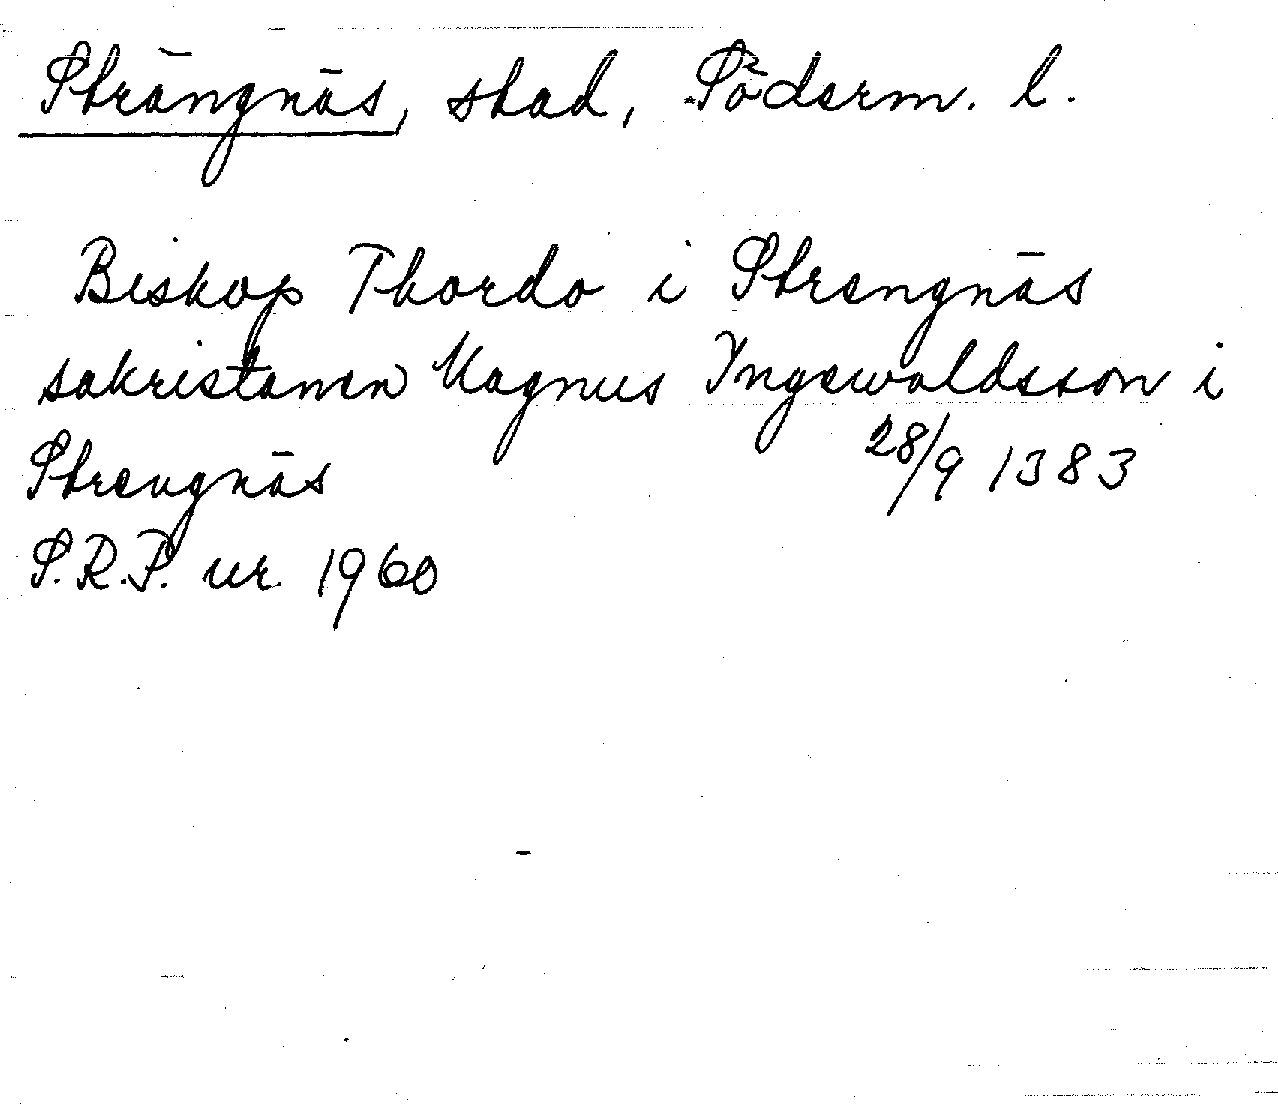 Strängnäs, stad, Söderm. l.
Biskop Thordo i Strengnäs
sakristanen Magnus Yngewaldsson i
Strengnäs 28/9 1383
S.R.P. nr. 1960